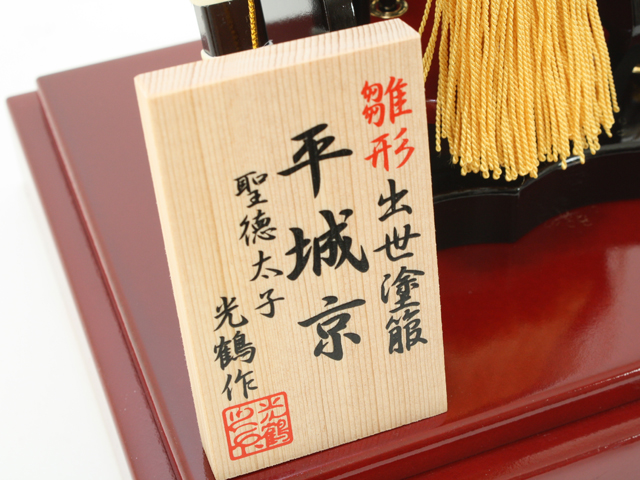 雛形
出世塗箙
平城京
聖德太子
光鶴作
光鶴